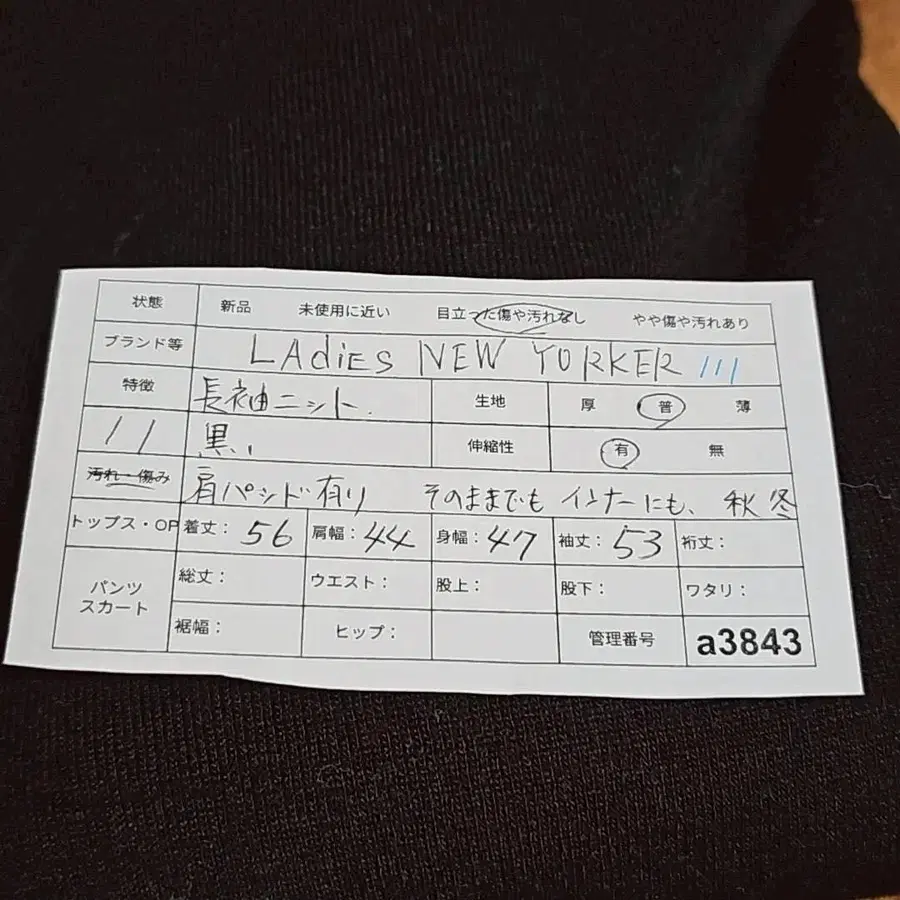 状態 新品 未使用に近い 目立った傷や汚れなし やや傷や汚れあり
ブランド等 LAdiES NEW YORKER 111
特徴 長袖ニット. 生地 厚 普 薄
11 黒、 伸縮性 有 無
汚れ・傷み 肩パッド有り そのままでも インナーにも、秋冬
トップス・OP 着丈: 56 肩幅: 44 身幅: 47 袖丈: 53 裄丈:
パンツ スカート 総丈: ウエスト: 股上: 股下: ワタリ:
裾幅: ヒップ: 管理番号 a3843